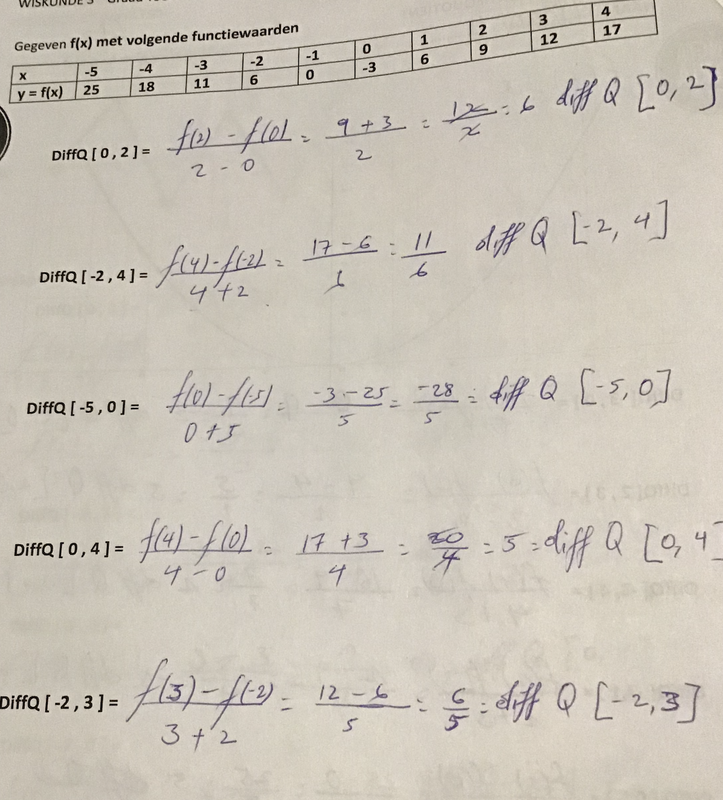 WISKUNDE
Gegeven f(x) met volgende functiewaarden
x -5 -4 -3 -2 -1 0 1 2 3 4
y = f(x) 25 18 11 6 0 -3 6 9 12 17
DiffQ [ 0 , 2 ] = f(2) - f(0) / 2 - 0 = 9 + 3 / 2 = 12 / 2 = 6 diff Q [0, 2]
DiffQ [ -2 , 4 ] = f(4) - f(-2) / 4 + 2 = 17 - 6 / 6 = 11 / 6 diff Q [-2, 4]
DiffQ [ -5 , 0 ] = f(0) - f(-5) / 0 + 5 = -3 - 25 / 5 = -28 / 5 = diff Q [-5, 0]
DiffQ [ 0 , 4 ] = f(4) - f(0) / 4 - 0 = 17 + 3 / 4 = 20 / 4 = 5 = diff Q [0, 4]
DiffQ [ -2 , 3 ] = f(3) - f(-2) / 3 + 2 = 12 - 6 / 5 = 6 / 5 = diff Q [-2, 3]